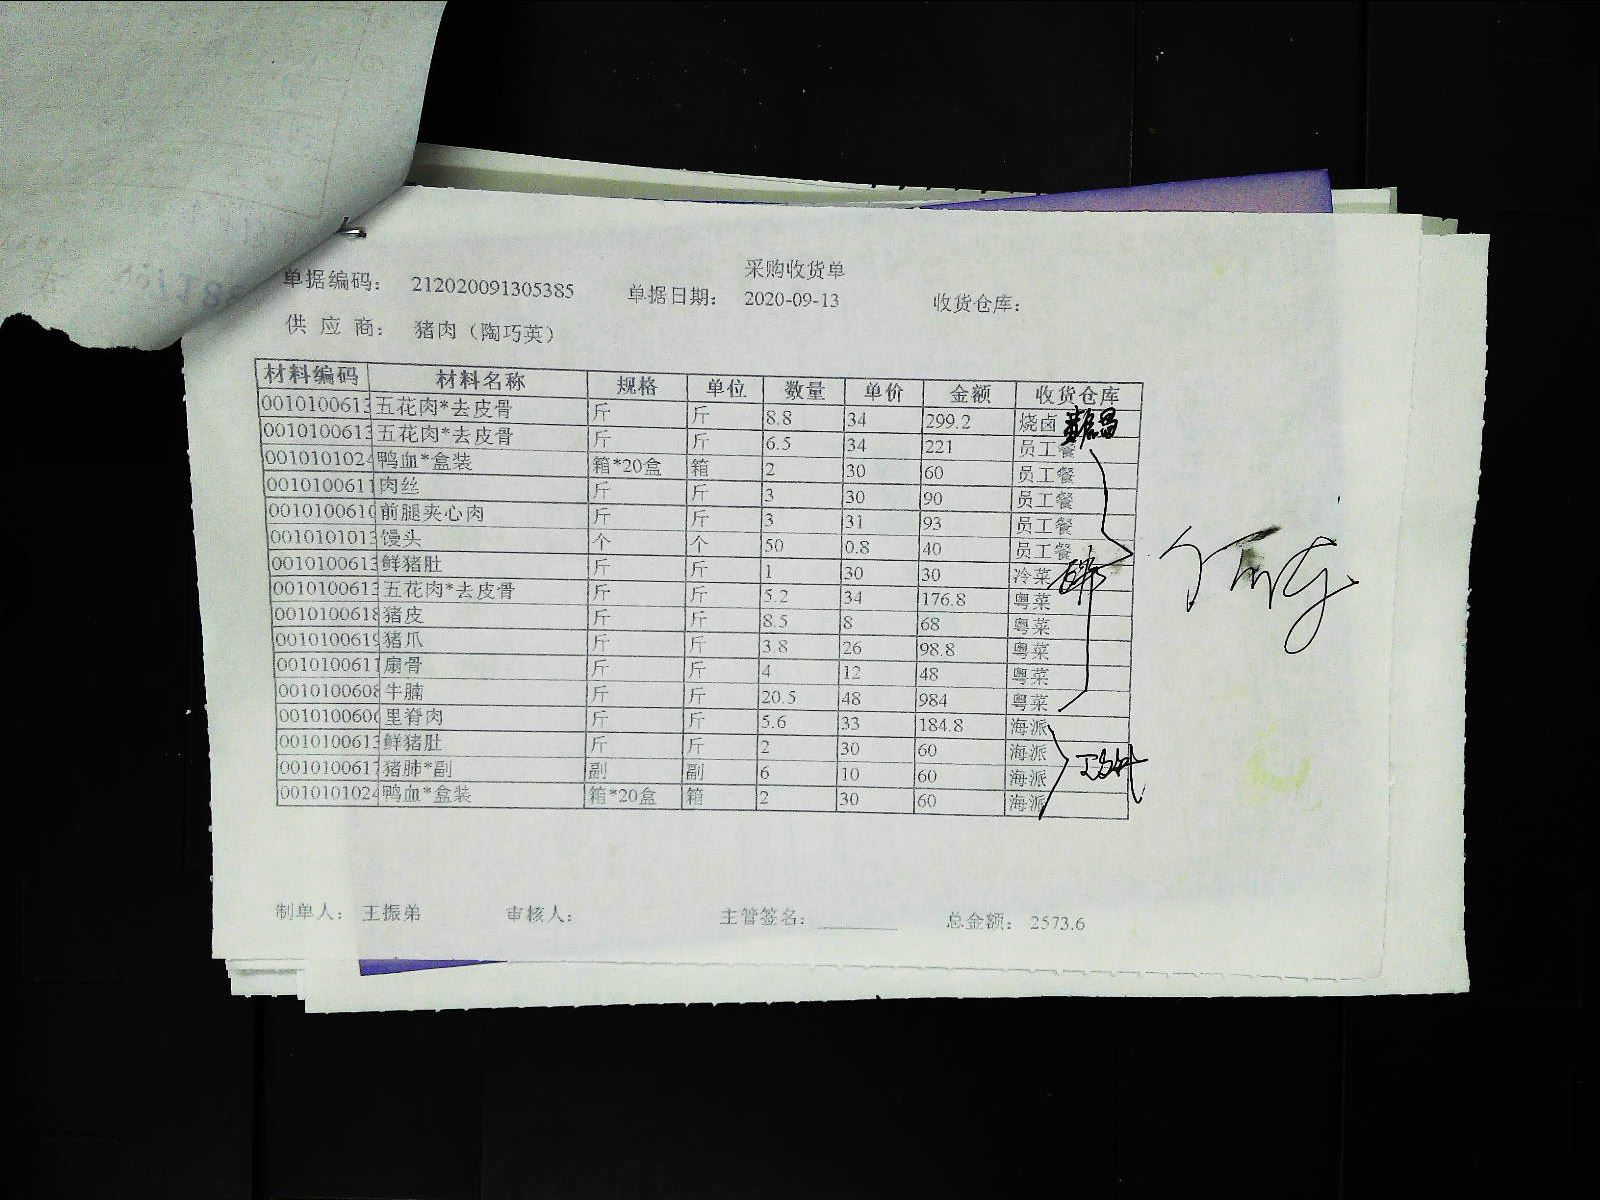 采购收货单
单据编码： 212020091305385 单据日期： 2020-09-13 收货仓库：
供 应 商： 猪肉（陶巧英）
材料编码 材料名称 规格 单位 数量 单价 金额 收货仓库
0010100613 五花肉*去皮骨 斤 斤 8.8 34 299.2 烧卤
0010100613 五花肉*去皮骨 斤 斤 6.5 34 221 员工餐
0010101024 鸭血*盒装 箱*20盒 箱 2 30 60 员工餐
0010100611 肉丝 斤 斤 3 30 90 员工餐
0010100610 前腿夹心肉 斤 斤 3 31 93 员工餐
0010101013 馒头 个 个 50 0.8 40 员工餐
0010100613 鲜猪肚 斤 斤 1 30 30 冷菜
0010100613 五花肉*去皮骨 斤 斤 5.2 34 176.8 粤菜
0010100618 猪皮 斤 斤 8.5 8 68 粤菜
0010100619 猪爪 斤 斤 3.8 26 98.8 粤菜
0010100611 扇骨 斤 斤 4 12 48 粤菜
0010100608 牛腩 斤 斤 20.5 48 984 粤菜
0010100606 里脊肉 斤 斤 5.6 33 184.8 海派
0010100613 鲜猪肚 斤 斤 2 30 60 海派
0010100617 猪肺*副 副 副 6 10 60 海派
0010101024 鸭血*盒装 箱*20盒 箱 2 30 60 海派
制单人： 王振弟 审核人： 主管签名： 总金额： 2573.6